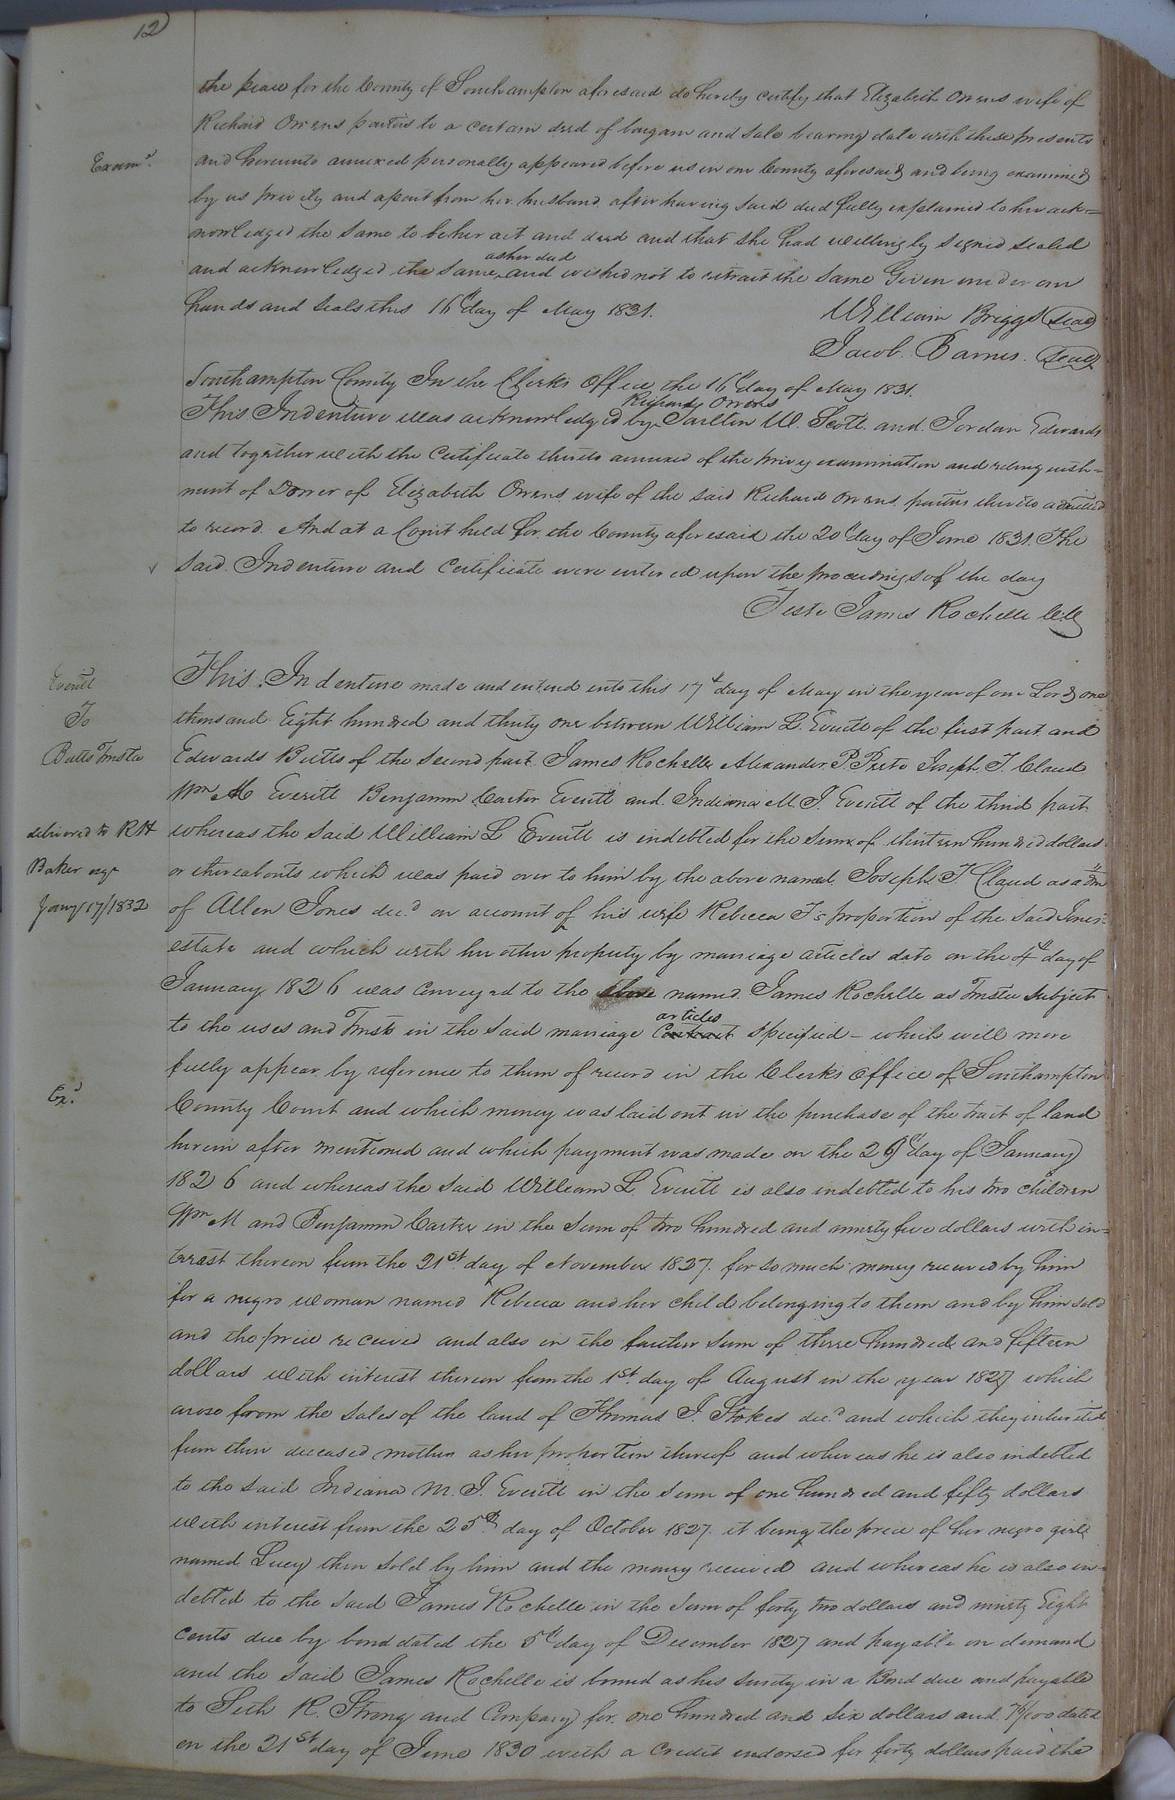 12
the peace for the County of Southampton aforesaid do hereby certify that Elizabeth Owens wife of
Richard Owens parties to a certain deed of bargain and sale bearing date with these presents
Examd.
and hereunto annexed personally appeared before us in our County aforesaid and being examined
by us privily and apart from her husband after having said deed fully explained to her ack=
nowledged the same to be her act and deed and that she had willingly signed sealed
as her deed
and acknowledged the same and wished not to retract the same Given under our
hands and seals this 16th day of May 1831.
William Briggs (seal)
Jacob Barnes (seal)
Southampton County In the Clerks Office the 16th day of May 1831.
Richard Owens
This Indenture was acknowledged by Tarlton W. Scott and Jordan Edwards
and together with the Certificate thereto annexed of the privy examination and relinquish=
ment of Dower of Elizabeth Owens wife of the said Richard Owens parties thereto admitted
to record. And at a Court held for the County aforesaid the 20th day of June 1831. The
said Indenture and Certificate were entered upon the proceedings of the day
Teste James Rochelle C.C.
Everitt
To
Butts Trustee
delivered to RH
Baker esqr
Jany 17/1832
This Indenture made and entered into this 17th day of May in the year of our Lord one
thousand Eight hundred and thirty one between William L. Everitt of the first part and
Edwards Butts of the second part James Rochelle Alexander P. Joseph T. Claud
Wm M Everitt Benjamin Carter Everitt and Indiana M. J. Everitt of the third part
whereas the said William L Everitt is indebted for the sum of thirteen hundred dollars
or thereabouts which was paid over to him by the above named Joseph T Claud as adm
of Allen Jones decd on account of his wife Rebecca T's proportion of the said Jones'
estate and which with her other property by marriage articles date on the 4th day of
January 1826 was conveyed to the above named James Rochelle as Trustee subject
articles
to the uses and Trusts in the said marriage Contract specified – which will more
fully appear by reference to them of record in the Clerks Office of Southampton
Exd.
County Court and which money was laid out in the purchase of the tract of land
herein after mentioned and which payment was made on the 29th day of January
1826 and whereas the said William L Everitt is also indebted to his two children
Wm M and Benjamin Carter in the sum of two hundred and ninety five dollars with in=
terest thereon from the 21st day of November 1827. for so much money received by him
for a negro woman named Rebecca and her child belonging to them and by him sold
and the price received and also in the further sum of three hundred and fifteen
dollars with interest thereon from the 1st day of August in the year 1827 which
arose from the sales of the land of Thomas J. Stokes decd and which they inherited
from their deceased mother as her proportion thereof and whereas he is also indebted
to the said Indiana M. J. Everitt in the sum of one hundred and fifty dollars
with interest from the 25th day of October 1827. it being the price of her negro girl
named Lucy then sold by him and the money received and whereas he is also in=
debted to the said James Rochelle in the sum of forty two dollars and ninety Eight
cents due by bond dated the 5th day of December 1827 and payable on demand
and the said James Rochelle is bound as his surety in a Bond due and payable
to Seth R. Strong and Company for one hundred and six dollars and 76/100 dated
on the 21st day of June 1830 with a credit endorsed for forty dollars paid the